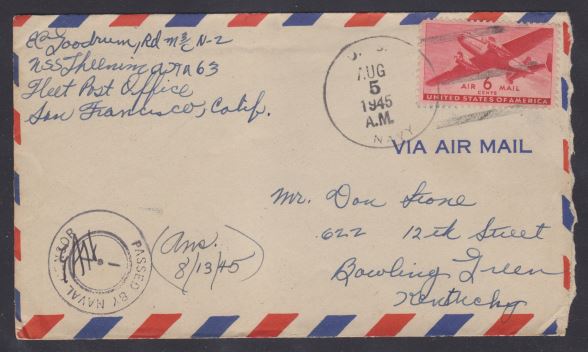 Goodrum, Rd M 3/c N-2
Fleet Post Office
San Francisco, Calif.
U. S.
AUG
5
1945
A.M.
NAVY
AIR 6 MAIL
CENTS
UNITED STATES OF AMERICA
VIA AIR MAIL
Mr. Don Stone
622 12th Street
Bowling Green
Kentucky
PASSED BY NAVAL CENSOR
(Ans.
8/13/45)